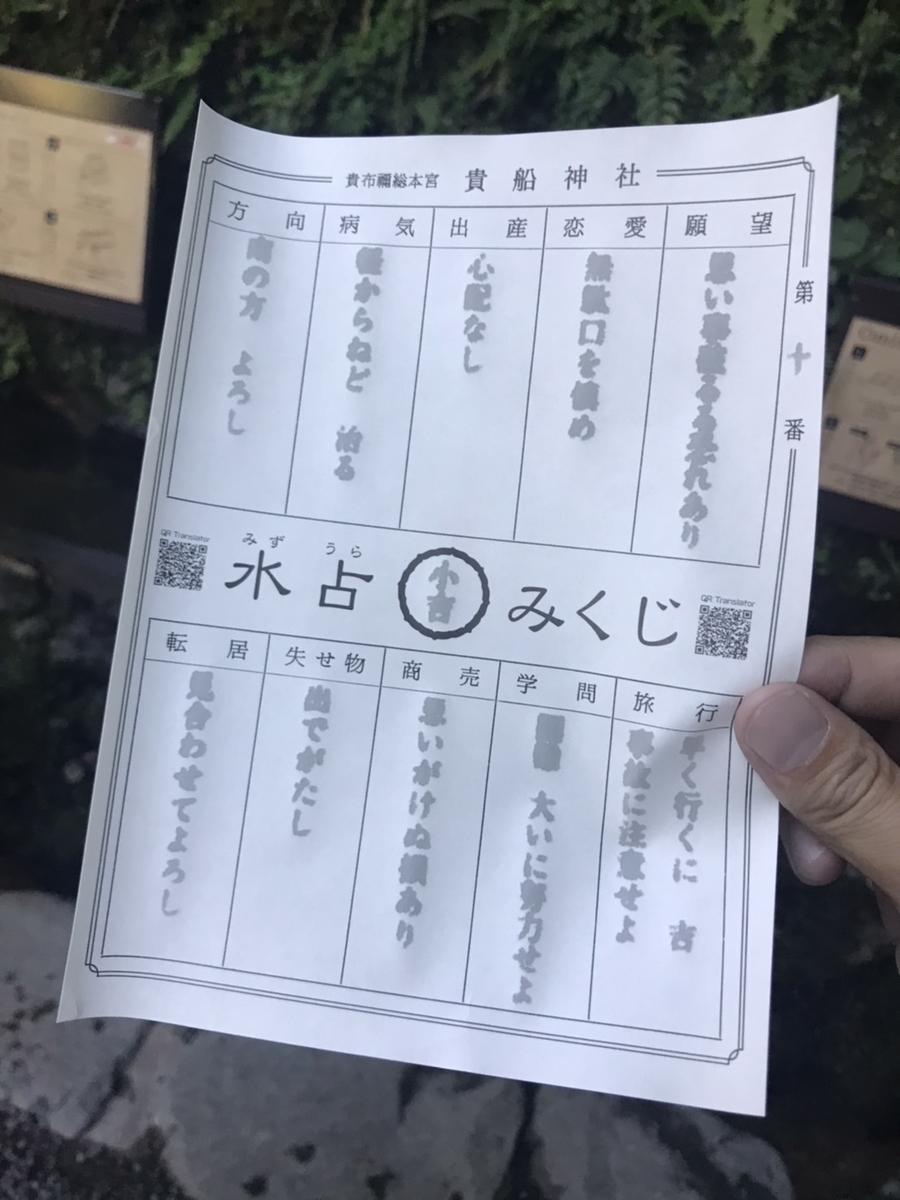 貴布禰総本宮 貴船神社
第十番
願望
思い事破るる恐れあり
恋愛
無駄口を慎め
出産
心配なし
病気
軽からねど 治る
方向
南の方 よろし
みず うら
水占 小吉 みくじ
QR Translator
QR Translator
旅行
早く行くに 吉
事故に注意せよ
学問
大いに努力せよ
商売
思いがけぬ損あり
失せ物
出でがたし
転居
見合わせてよろし